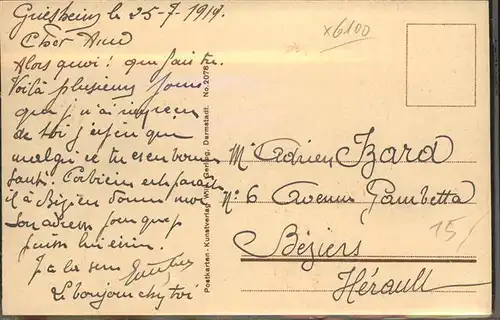 Griesheim le 25-7-1919.
Cher Ami
Alors quoi! que fais tu.
Voilà plusieurs jours
que j'n'ai rien
de toi j'espère que
malgré ce tu es en bonne
santé. Corbière est parait
il à Béziers donne moi
son adresse pour que
puisse lui écrire.
J. a la
Le bonjour chez toi
x6100
Postkarten-Kunstverlag Wilh. Gerling, Darmstadt. No. 2078
Mr Adrien Izard
No 6 Avenue Gambetta
15
Béziers
Hérault